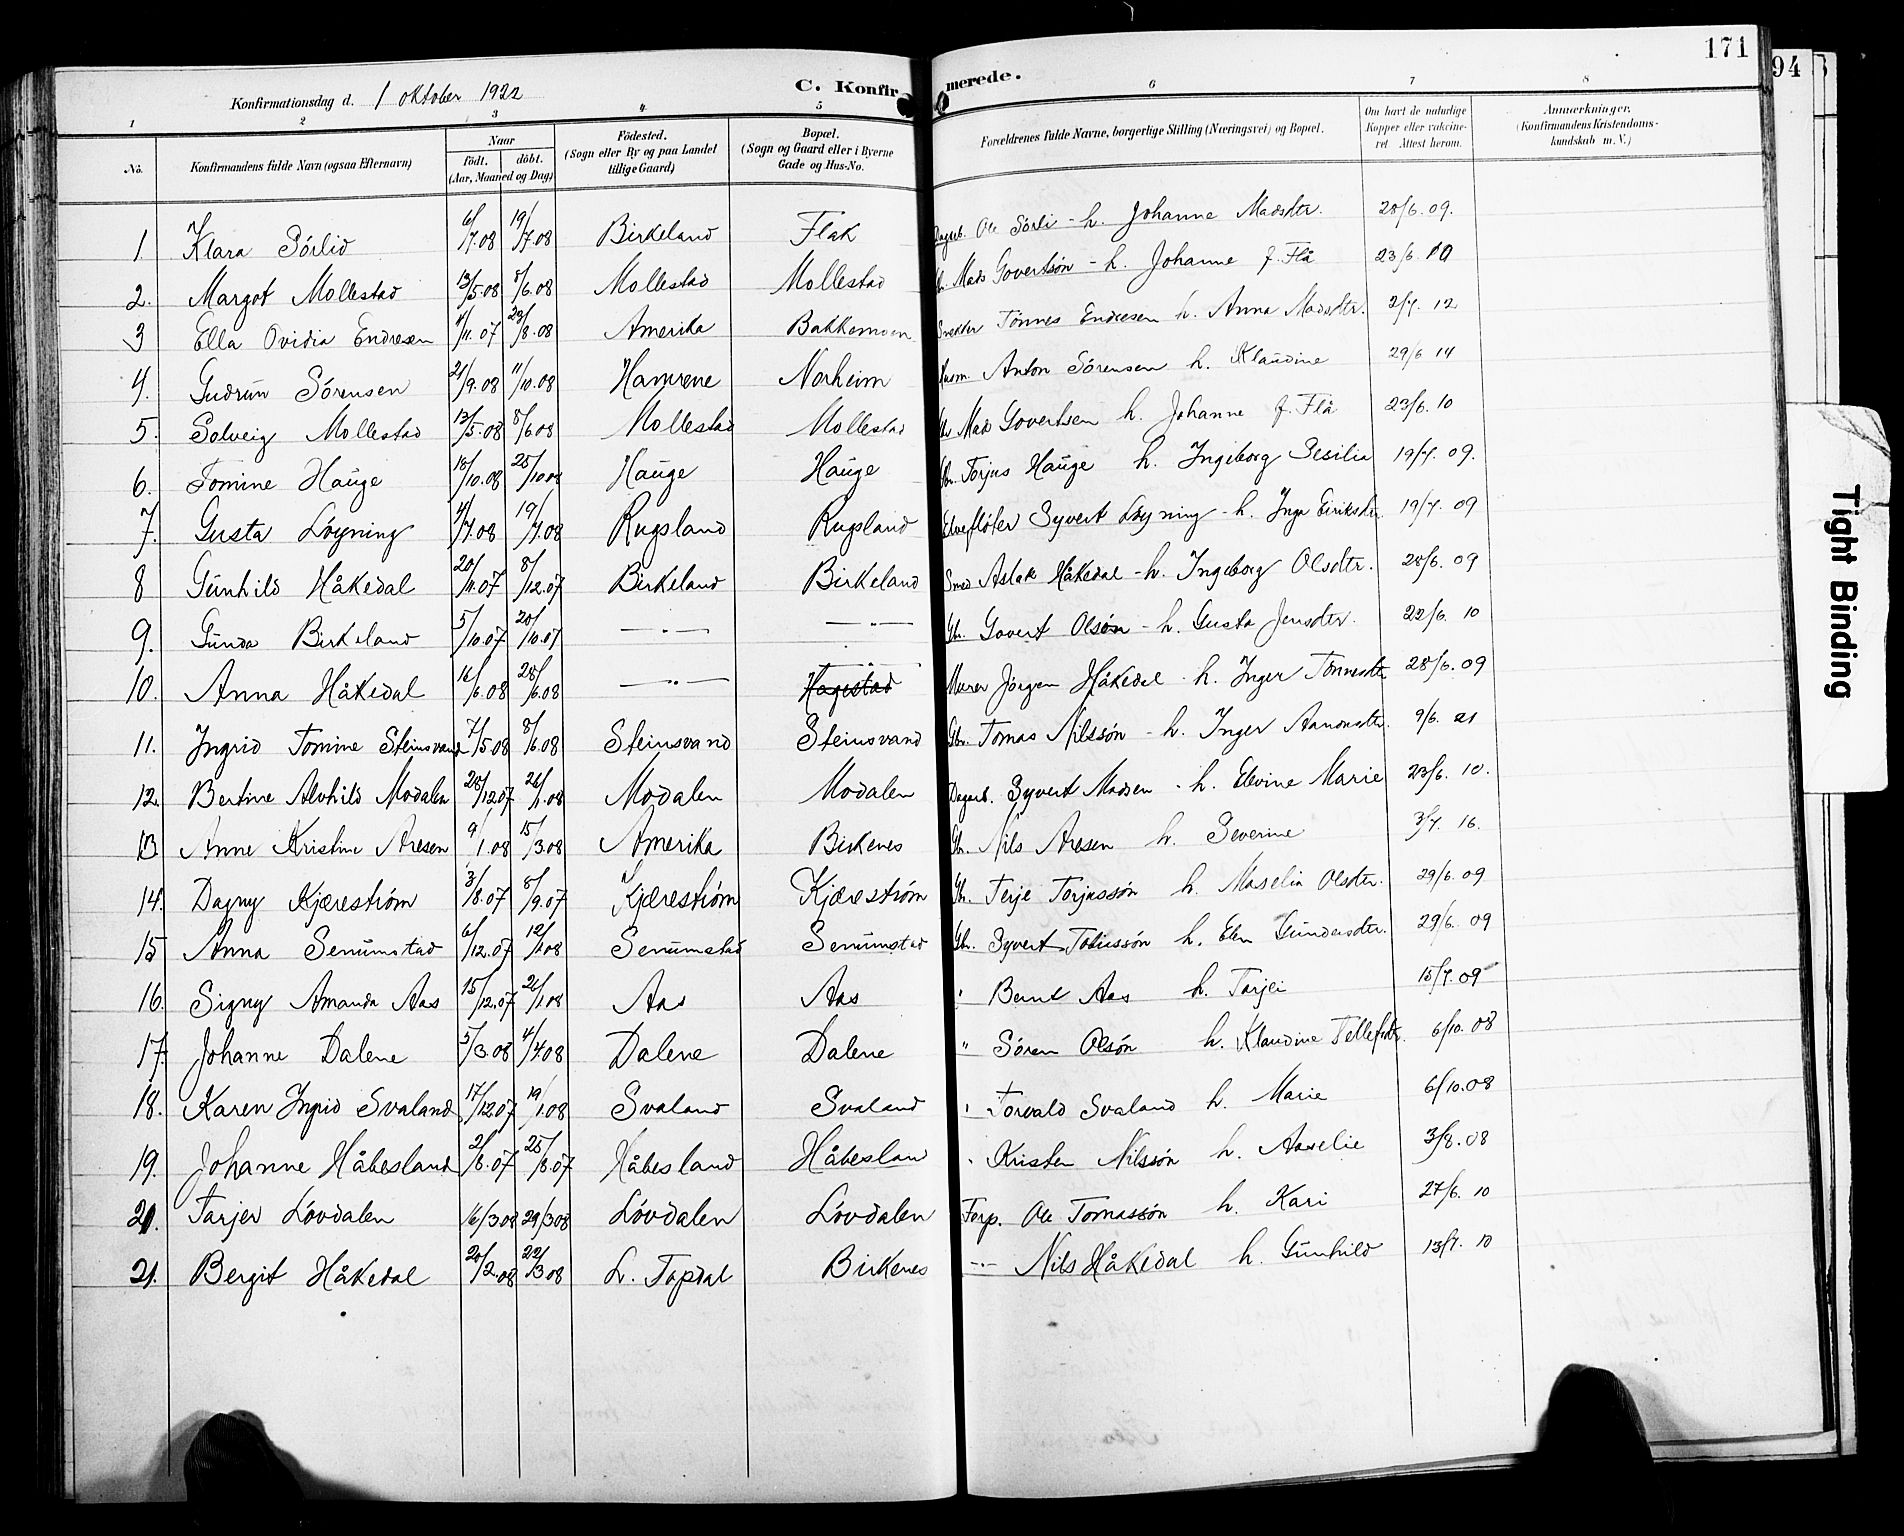 171
94
Konfirmationsdag d. 1 oktober 1922
C. Konfirmerede.
1 2 3 4 5 6 7 8
No.
Konfirmandens fulde Navn (ogsaa Efternavn)
Naar
født. døbt.
(Aar, Maaned og Dag)
Fødested.
(Sogn eller By og paa Landet
tillige Gaard)
Bopæl.
(Sogn og Gaard eller i Byerne
Gade og Hus-No.
Forældrenes fulde Navne, borgerlige Stilling (Næringsvei) og Bopæl.
Om havt de naturlige
Kopper eller vaccine-
ret Attest herom.
Anmærkninger.
(Konfirmandens Kristendoms-
kundskab m. V.)
1. Klara Sórlid 6/7.08 19/7.08 Birkeland Flak Dagarb. Ole Sórli - h. Johanne Madsdtr. 28/6.09.
2. Margot Mollestad 13/5.08 8/6.08 Mollestad Mollestad Gbr. Mads Govertsón - h. Johanne f. Flå 23/6.10
3 Ella Ovidia Endresen 4/11.07 23/8.08 Amerika Bakkemoen Snekker Tónnes Endresen h. Anna Madsdtr. 2/7.12
4. Gudrun Sórensen 21/9.08 11/10.08 Hamrene Norheim Husm. Anton Sórensen h. Klaudine 29/6 14
5. Solveig Mollestad 13/5.08 8/6.08 Mollestad Mollestad Gbr Mads Govertsen h. Johanne f. Flå 23/6.10
6. Tomine Hauge 18/10.08 25/10.08 Hauge Hauge Gbr. Torjus Hauge h. Ingeborg Sesilie 19/7.09.
7. Gusta Lóyning 4/7.08 19/7.08 Rugsland Rugsland Elvefløter Syvert Lóyning - h. Inga Eriksdtr. 19/7.09
8 Gunhild Håkedal 20/11.07 8/12.07 Birkeland Birkeland Smed Aslak Håkedal - h. Ingeborg Olsdtr. 28/6.09
9. Gunda Birkeland 5/10.07 20/10.07 —„— —„— Gbr. Govert Olsón - h. Gusta Jensdtr. 22/6.10
10. Anna Håkedal 16/6.08 28/6.08 —„— Hagestad Murer Jórgen Håkedal - h. Inger Tónnesdtr 28/6.09
11. Ingrid Tomine Steinsvand 7/5.08 8/6.08 Steinsvand Steinsvand Gbr. Tomas Nilssón - h. Inger Aanonsdtr. 9/6.21
12. Bertine Alvhild Modalen 28/12.07 26/1.08 Modalen Modalen Dagarb. Syvert Madsen - h. Elevine Marie 23/6.10.
13 Anne Kristine Aresen 9/1.08 15/3.08 Amerika Birkenes Gbr. Nils Aresen h. Severine 3/7.16.
14. Dagny Kjærestróm 3/8.07 8/9.07 Kjærestróm Kjærestróm Gbr. Terje Torjussón h. Maselia Olsdtr. 29/6.09
15 Anna Senumstad 6/12.07 12/1.08 Senumstad Senumstad Gbr. Syvert Tobiassón h. Elen Gundersdtr. 29/6.09
16. Signy Amanda Aas 15/12.07 26/1.08 Aas Aas " Bernt Aas h. Tarjei 15/7.09
17. Johanne Dalene 5/3.08 4/4.08 Dalene Dalene " Sóren Olsón h. Klaudine Tellefsdtr. 6/10.08
18. Karen Ingrid Svaland 17/12.07 19/1.08 Svaland Svaland " Torvald Svaland h. Marie 6/10.08
19. Johanne Håbesland 2/8.07 25/8.07 Håbesland Håbeslan " Kristen Nilssón h. Aaselie 3/8.08
20. Tarjer Lóvdalen 16/3.08 29/3.08 Lóvdalen Lóvdalen Forp. Ole Tomassón h. Kari 27/6.10
21. Bergit Håkedal 20/2.08 22/3.08 L. Topdal Birkenes —„— Nils Håkedal h. Gunhild 13/7.10
Tight Binding